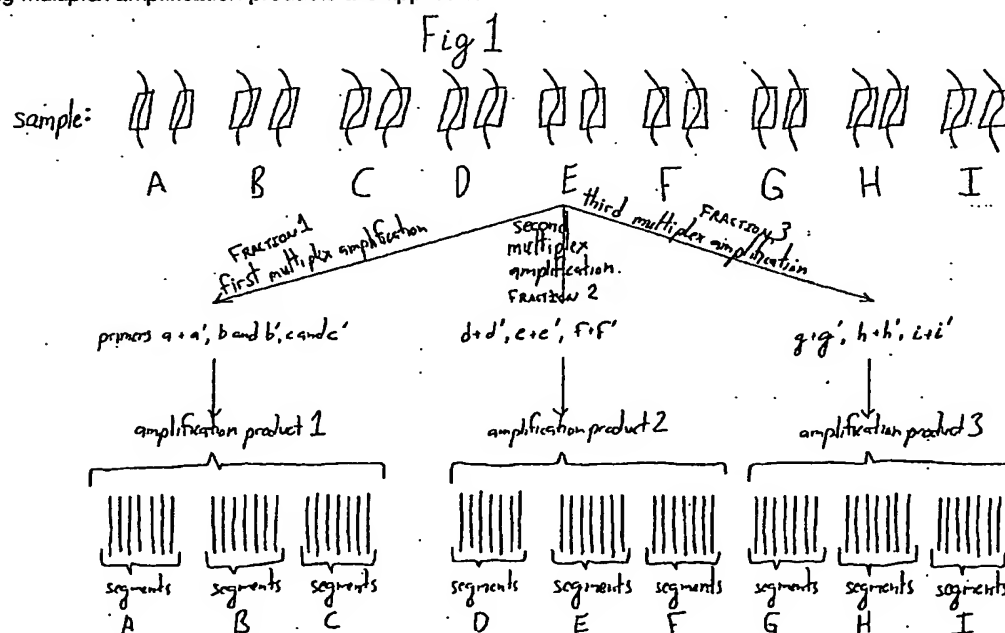 Fig 1
sample:
A B C D E F G H I
FRACTION 1
first multiplex amplification
second
multiplex
amplification.
FRACTION 2
FRACTION 3
third multiplex amplification
primers a + a', b and b', c and c'
d+d', e+e', f+f'
g+g', h+h', i+i'
amplification product 1
amplification product 2
amplification product 3
segments segments segments segments segments segments segments segments segments
A B C D E F G H I